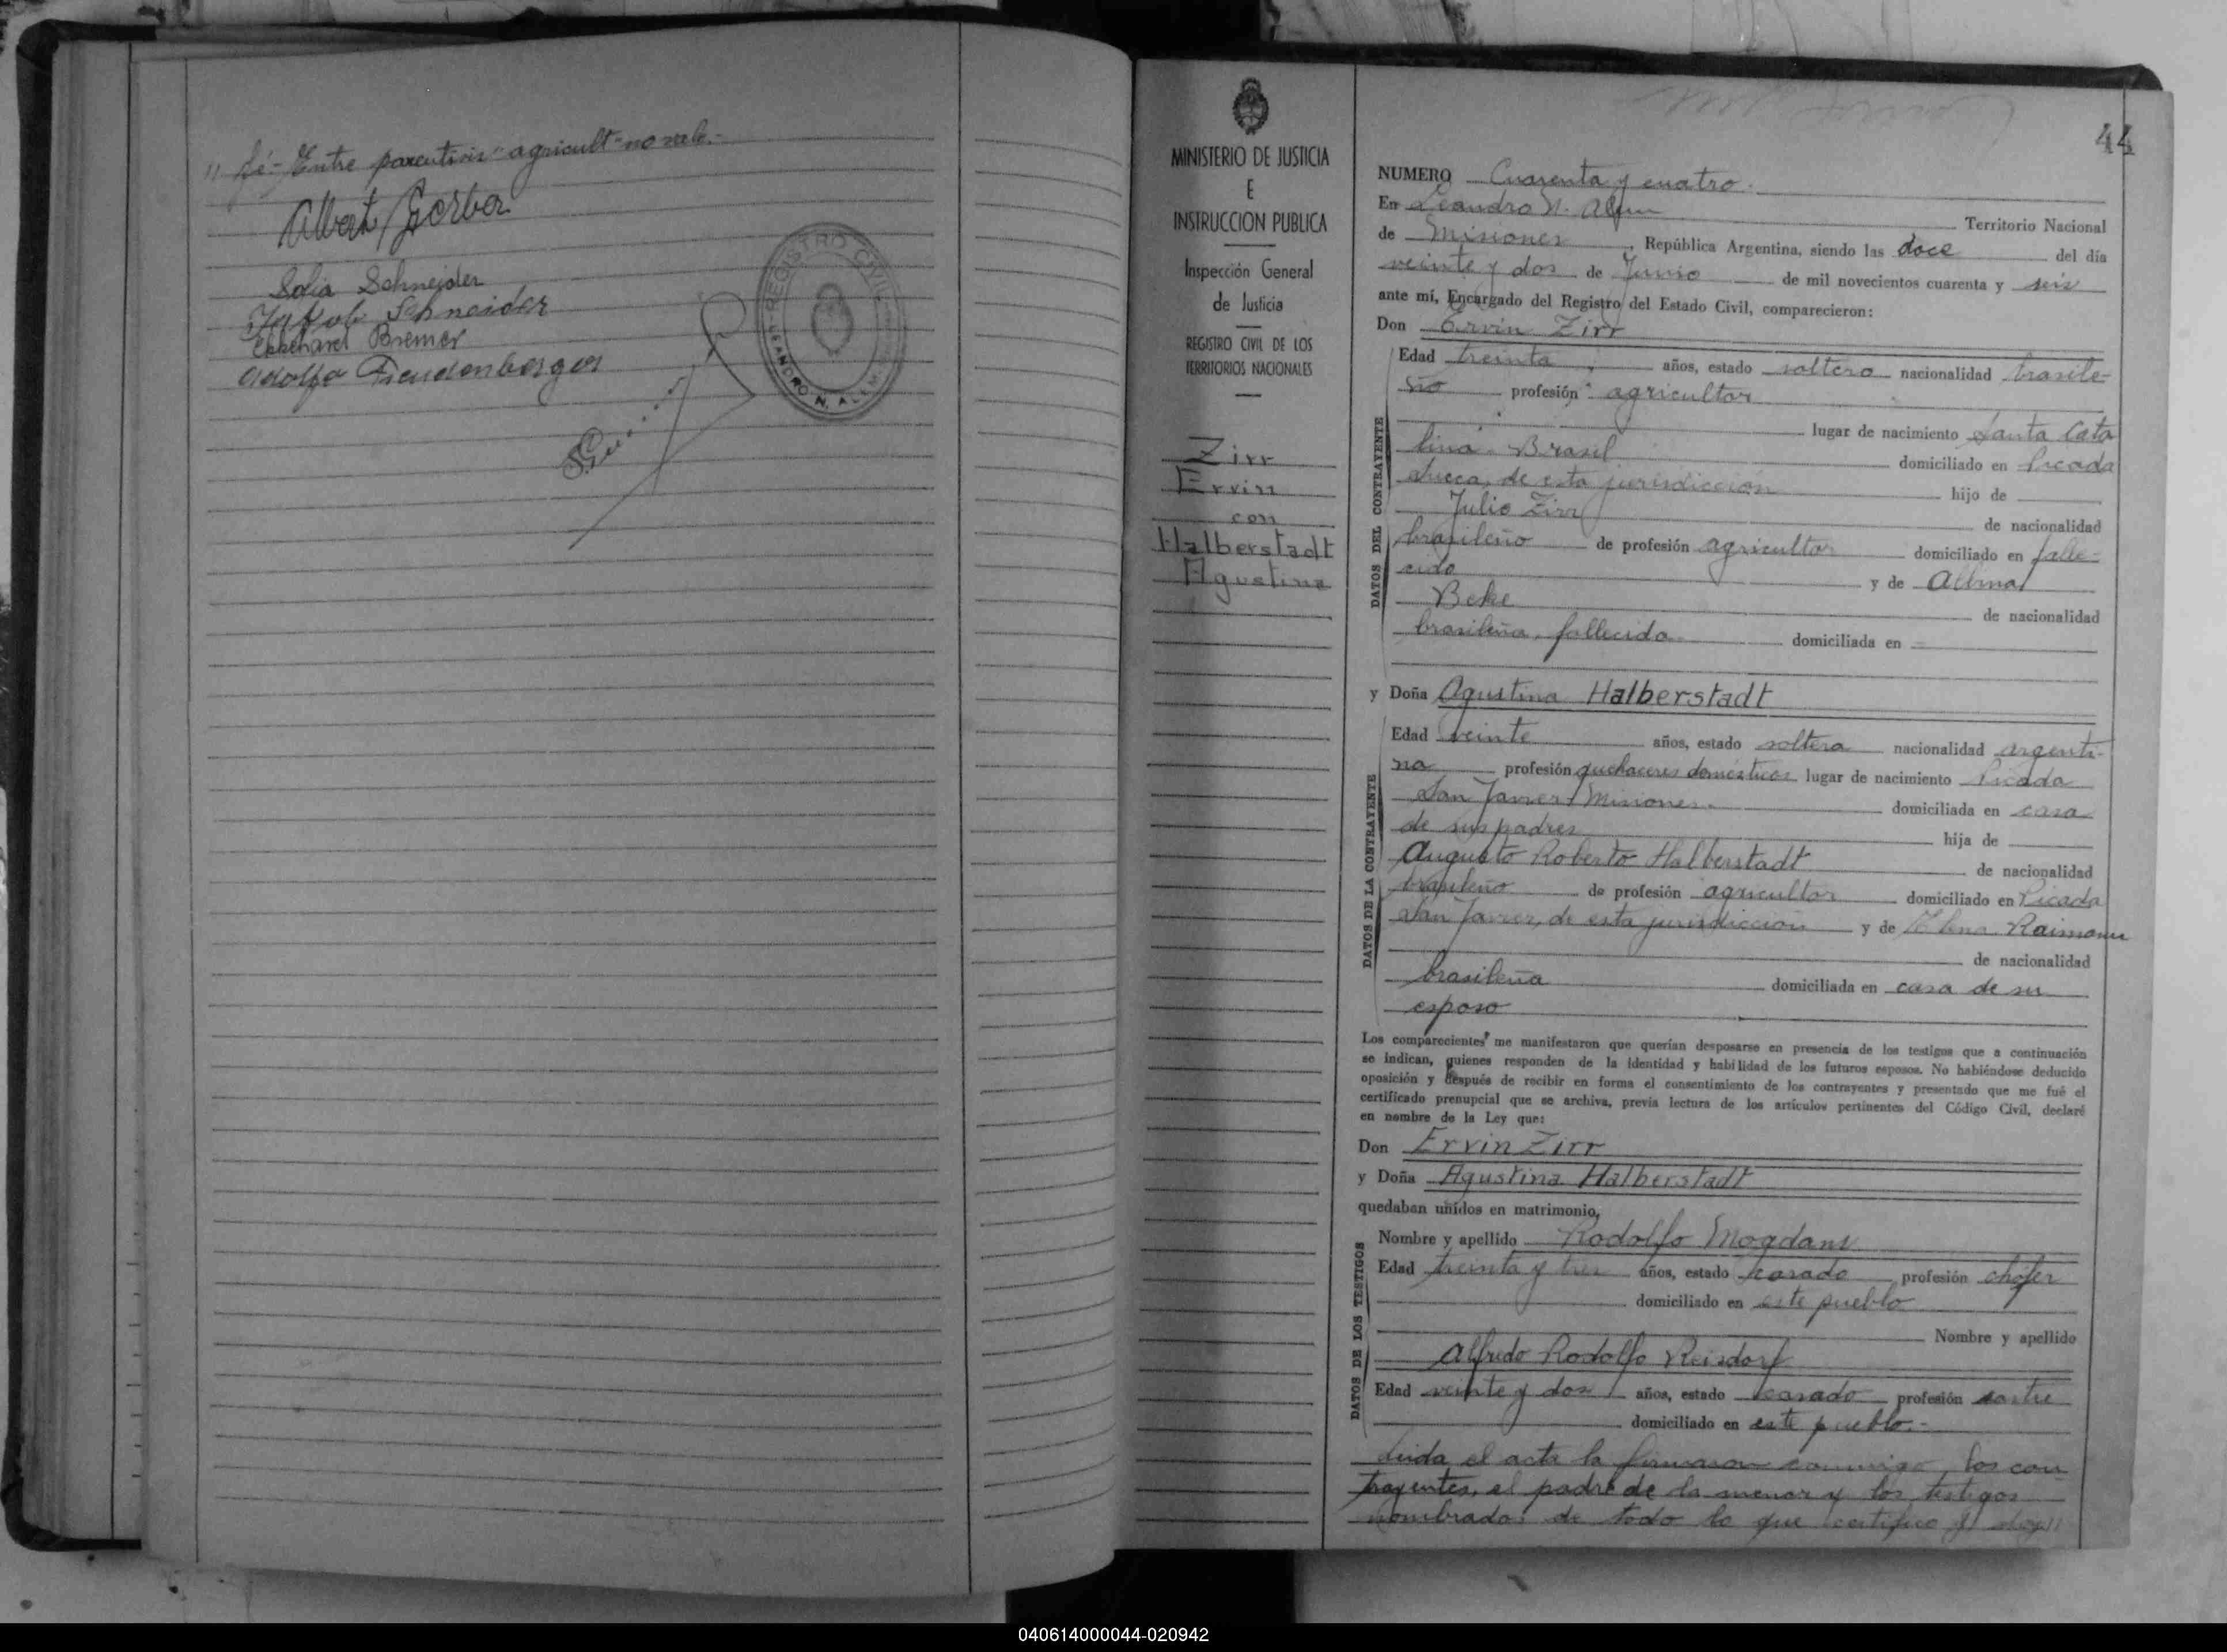 " fé.- Entre parentisis "agricult" no vale.-
Albert Gerber
Sofia Schneider
Jakob Schneider
Ekkehard Bremer
Adolfo Freudenberger
REGISTRO CIVIL
LEANDRO N. ALEM
MINISTERIO DE JUSTICIA
E
INSTRUCCION PUBLICA
Inspección General
de Justicia
REGISTRO CIVIL DE LOS
TERRITORIOS NACIONALES
Zirr
Ervin
con
Halberstadt
Agustina
44
NUMERO Cuarenta y cuatro.
En Leandro N. Alem Territorio Nacional
de Misiones, República Argentina, siendo las doce del día
veinte y dos de Junio de mil novecientos cuarenta y seis
ante mí, Encargado del Registro del Estado Civil, comparecieron:
Don Ervin Zirr
DATOS DEL CONTRAYENTE
Edad treinta, años, estado soltero nacionalidad brasile-
ño profesión agricultor
lugar de nacimiento Santa Cata
lina - Brasil domiciliado en Picada
Sueca, de esta jurisdicción hijo de
Julio Zirr de nacionalidad
brasileño de profesión agricultor domiciliado en falle-
cido y de Albina
de nacionalidad
brasileña, fallecida domiciliada en
y Doña Agustina Halberstadt
DATOS DE LA CONTRAYENTE
Edad veinte años, estado soltera nacionalidad argenti-
na profesión quehaceres domésticos lugar de nacimiento Picada
San Javier, Misiones. domiciliada en casa
de sus padres hija de
Augusto Roberto Halberstadt de nacionalidad
brasileño de profesión agricultor domiciliado en Picada
San Javier, de esta jurisdicción y de
de nacionalidad
brasileña domiciliada en casa de su
esposo
Los comparecientes me manifestaron que querían desposarse en presencia de los testigos que a continuación
se indican, quienes responden de la identidad y habilidad de los futuros esposos. No habiéndose deducido
oposición y después de recibir en forma el consentimiento de los contrayentes y presentado que me fué el
certificado prenupcial que se archiva, previa lectura de los artículos pertinentes del Código Civil, declaré
en nombre de la Ley que:
Don Ervin Zirr
y Doña Agustina Halberstadt
quedaban unidos en matrimonio.
DATOS DE LOS TESTIGOS
Nombre y apellido Rodolfo Mogdans
Edad treinta y tres años, estado casado profesión chófer
domiciliado en este pueblo
Nombre y apellido
Alfredo Rodolfo Reisdorf
Edad veinte y dos años, estado casado profesión sastre
domiciliado en este pueblo.-
Leida el acta la firmaron conmigo, los con
trayentes, el padre de la menor y los testigos
nombrados de todo lo que certifico y doy"
040614000044-020942